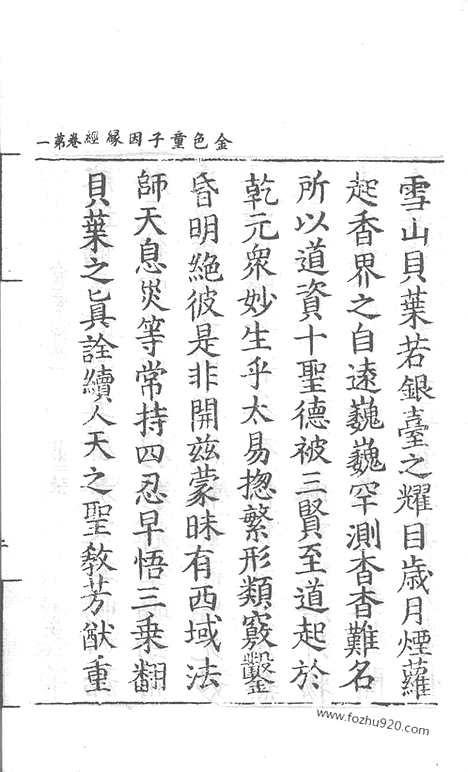 金色童子因縁經卷第一
雪山貝葉若銀臺之耀目歲月煙蘿
起香界之自遠巍巍罕測杳杳難名
所以道資十聖德被三賢至道起於
乾元衆妙生乎太易揔繁形類竅鑿
昏明絶彼是非開兹蒙昧有西域法
師天息災等常持四忍早悟三乗翻
貝葉之眞詮續人天之聖教芳猷重
www.fozhu920.com